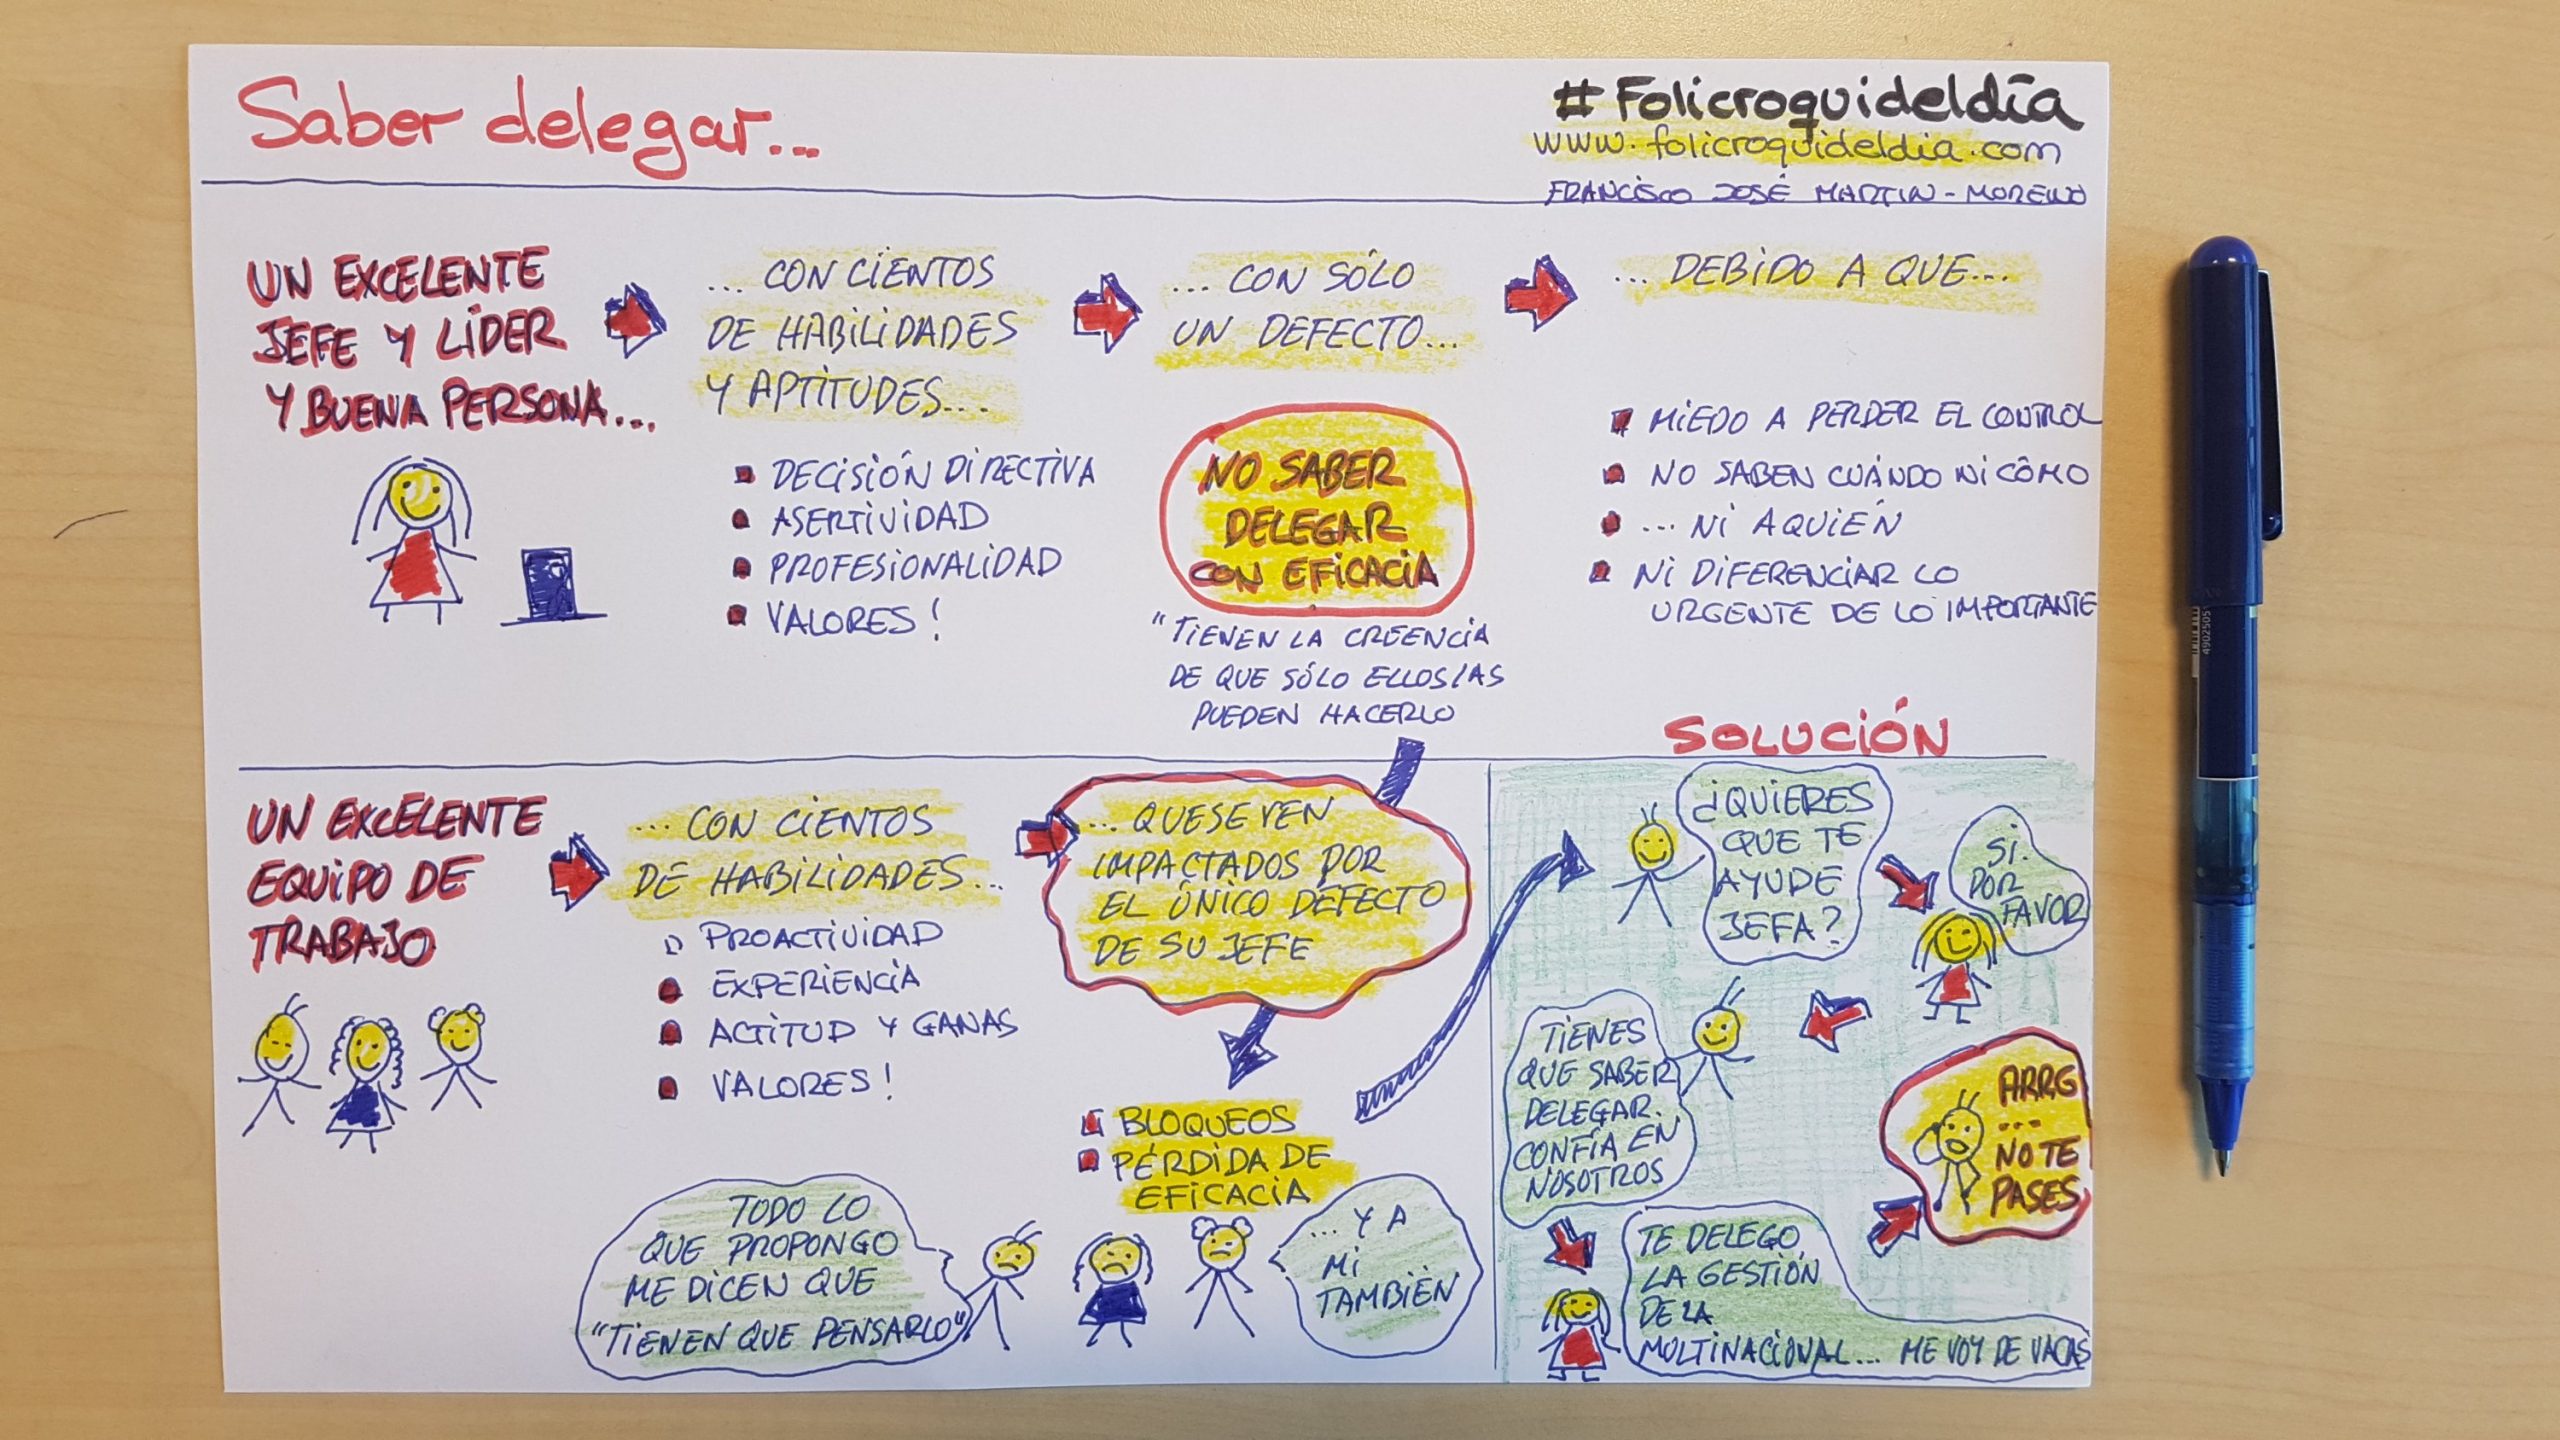 Saber delegar...
#Folicroquideldía
www.folicroquideldia.com
FRANCISCO JOSÉ MARTIN-MORENO
UN EXCELENTE
JEFE Y LÍDER
Y BUENA PERSONA...
... CON CIENTOS
DE HABILIDADES
Y APTITUDES...
DECISIÓN DIRECTIVA
ASERTIVIDAD
PROFESIONALIDAD
VALORES!
... CON SÓLO
UN DEFECTO...
NO SABER
DELEGAR
CON EFICACIA
"TIENEN LA CREENCIA
DE QUE SÓLO ELLOS/AS
PUEDEN HACERLO
... DEBIDO A QUE...
MIEDO A PERDER EL CONTROL
NO SABEN CUÁNDO NI CÓMO
... NI A QUIÉN
NI DIFERENCIAR LO
URGENTE DE LO IMPORTANTE
UN EXCELENTE
EQUIPO DE
TRABAJO
... CON CIENTOS
DE HABILIDADES...
PROACTIVIDAD
EXPERIENCIA
ACTITUD Y GANAS
VALORES!
... QUE SE VEN
IMPACTADOS POR
EL ÚNICO DEFECTO
DE SU JEFE
BLOQUEOS
PÉRDIDA DE
EFICACIA
TODO LO
QUE PROPONGO
ME DICEN QUE
"TIENEN QUE PENSARLO"
... Y A
MI
TAMBIÉN
SOLUCIÓN
¿QUIERES
QUE TE
AYUDE
JEFA?
SI.
POR
FAVOR
TIENES
QUE SABER
DELEGAR.
CONFÍA EN
NOSOTROS
TE DELEGO
LA GESTIÓN
DE LA
MULTINACIONAL... ME VOY DE VACAS
ARRG
...
NO TE
PASES
4902505